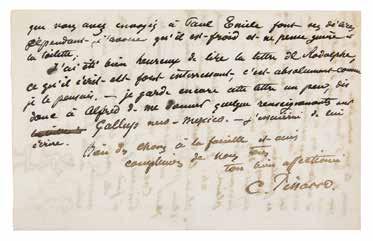 que vous avez envoyés à Paul Emile font
cependant j'avoue qu'il est froid et ne pense guère à
la toilette.
J'ai été bien heureux de lire la lettre de Rodolphe,
ce qu'il écrit est fort interessant, c'est absolument comme
je le pensais. — je garde encore cette lettre un peu, dis
donc à Alfred de me donner quelque renseignements sur
Gallup new-mexico. — j'essaierai de lui
écrire.
Bien des choses à la famille et amis
compliments de nous tous
ton bien affectionné
C. Pissarro